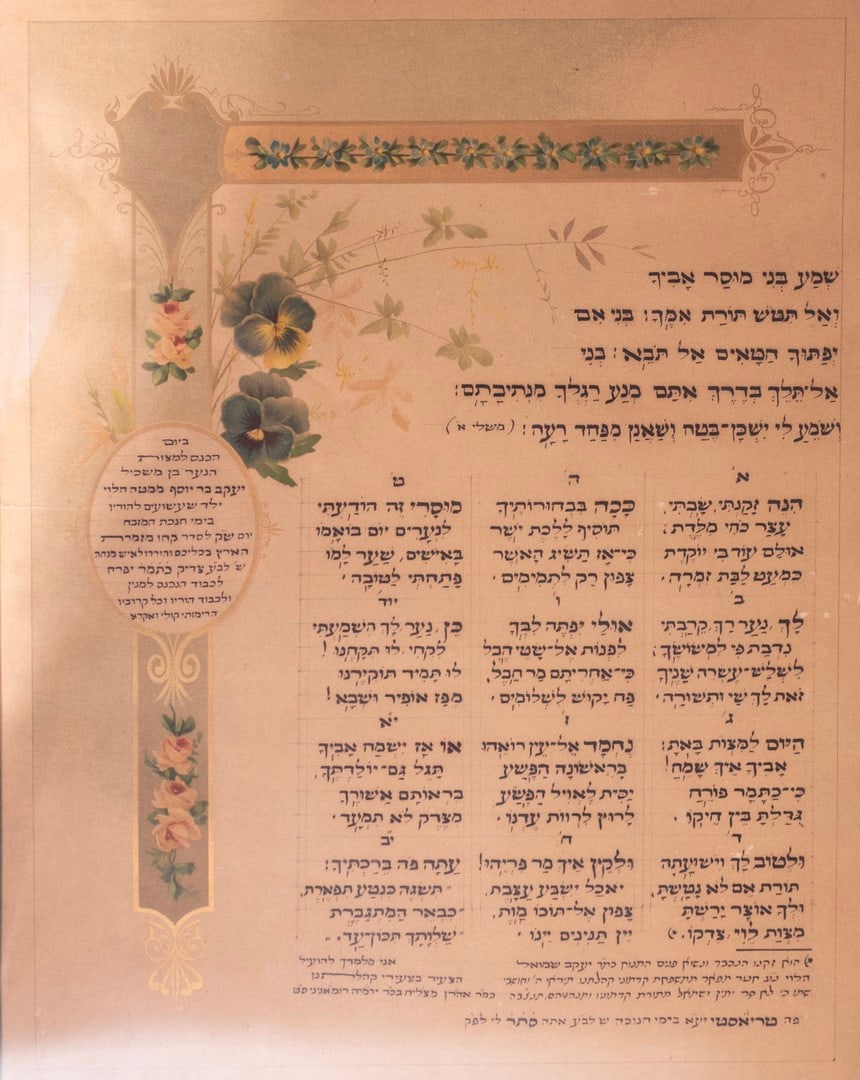 שְׁמַע בְּנִי מוּסַר אָבִיךָ
וְאַל תִּטֹּשׁ תּוֹרַת אִמֶּךָ: בְּנִי אִם
יְפַתּוּךָ חַטָּאִים אַל תֹּבֵא: בְּנִי
אַל־תֵּלֵךְ בְּדֶרֶךְ אִתָּם מְנַע רַגְלְךָ מִנְּתִיבָתָם:
וְשֹׁמֵעַ לִי יִשְׁכָּן־בֶּטַח וְשַׁאֲנַן מִפַּחַד רָעָה: (משלי א׳)
ביום
הכנס למצות
הנער בן משכיל
יעקב בר יוסף ממטה הלוי
ילד שעשועים להוריו
בימי חנכת המזבח
יום שק לסדר קחו מזמרת
הארץ בכליכם והורידו לאיש מנחה
ש׳ לפ״ק צדיק כתמר יפרח
לכבוד הנכנס למנין
ולכבוד הוריו וכל קרוביו
הרימותי קולי ואקרא
א
הִנֵּה זָקַנְתִּי, שַׂבְתִּי,
עָצַר כֹּחִי מִלֶּדֶת;
אוּלָם עוֹד בִּי יוֹקֶדֶת
כִּמְעַט לַבַּת זִמְרָה.
ב
לָךְ, נַעַר רַךְ, קֵרַבְתִּי
נִדְבַת פִּי לִמְשׂוֹשֶׂךָ;
לִשְׁלֹשׁ־עֶשְׂרֵה שָׁנֶיךָ
זֹאת לָךְ שַׁי וּתְשׁוּרָה.
ג
הַיּוֹם לַמִּצְוֹת בָּאתָ;
אָבִיךָ אֵיךְ שָׂמֵחַ!
כִּי־כַתָּמָר פּוֹרֵחַ
גֻּדַּלְתָּ בֵּין חֵיקוֹ.
ד
וּלְטוֹב לָךְ וִישׁוּעָתָה
תּוֹרַת אִם לֹא נָטַשְׁתָּ,
וּלְךָ אוֹצָר יָרַשְׁתָּ
מִצְוַת לֵוִי, צִדְקוֹ.
ה
כָּכָה בִּבְחוּרוֹתֶיךָ
תּוֹסִיף לָלֶכֶת יֹשֶׁר
כִּי־אָז תַּשִּׂיג הָאֹשֶׁר
צָפוּן רַק לִתְמִימִים.
ו
אוּלַי יִפְתֶּה לִבֶּךָ
לִפְנוֹת אֶל־שָׂטֵי הֶבֶל
כִּי־אַחֲרִיתָם מַר חֶבֶל,
פַּח יָקוּשׁ לִשְׁלוֹמִים.
ז
נֶחְמָד אֶל־עֵין רוֹאֵהוּ
בָּרִאשׁוֹנָה הַפֶּשַׁע
יַסִּית לֶאֱוִיל הַפֶּשַׁע
לָרוּץ לִרְווֹת עֶדְנוֹ.
ח
וּלְקֵץ אֵיךְ מַר פִּרְיֵהוּ!
יֹאכַל יִשְׂבַּע עַצֶּבֶת,
צָפוּן אֶל־תּוֹכוֹ מָוֶת,
יֵין תַּנִּינִים יֵינוֹ.
ט
מוּסָרִי זֶה הוֹדַעְתִּי
לִנְעָרִים יוֹם בּוֹאָמוֹ
בָּאִישִׁים, שַׁעַר לָמוֹ
פָּתַחְתִּי לְטוֹבָה.
יוד
כֵּן, נַעַר, לָךְ הִשְׁמַעְתִּי
לִקְחִי, לוּ תִקָּחֶנּוּ!
לוּ תָמִיד תּוֹקִירֶנּוּ
מִפַּז אוֹפִיר וּשְׁבָא!
י״א
אוֹ אָז יִשְׂמַח אָבִיךָ
תָּגֵל גַּם־יוֹלַדְתֶּךָ,
בִּרְאוֹתָם אֲשׁוּרֶךָ
מִצֶּדֶק לֹא תִמְעָד.
י״ב
עַתָּה פֹּה בֵּרַכְתִּיךָ:
״תִּשְׂגֶּה כְּנֶטַע תִּפְאֶרֶת,
״כִּבְאֵר הַמִּתְגַּבֶּרֶת
״שַׁלְוָתְךָ תִּכּוֹן־עַד.״
הוא זקנו הנכבד ונשוא פנים יעקב שמואל
הלוי
אני מלמדך להועיל
הצעיר בצעירי
כמר אהרן מצליח בכר ירמיה רומאניני ס״ט
פה טריאסטי יע״א בימי חנוכה ש׳ לפ״ק אתה סתר לי לפ״ק